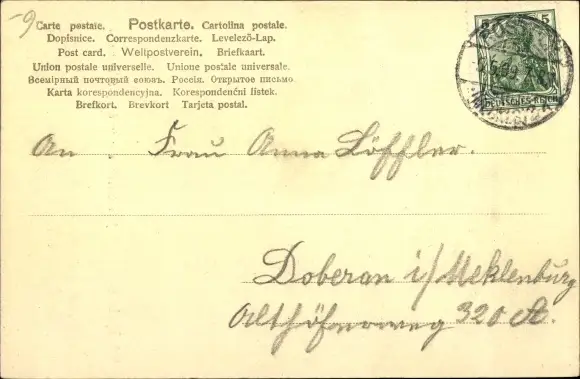 -9
Carte postale. Postkarte. Cartolina postale.
Dopisnice. Correspondenzkarte. Levelező-Lap.
Post card. Weltpostverein. Briefkaart.
Union postale universelle. Unione postale universale.
Всемірный почтовый союзъ. Россія. Открытое письмо
Karta korespondencyjna. Korespondenční listek.
Brefkort. Brevkort Tarjeta postal.
5 5
DEUTSCHES REICH
An Frau Anna Löffler.
Doberan i/Meklenburg
Althöferweg 320 A.